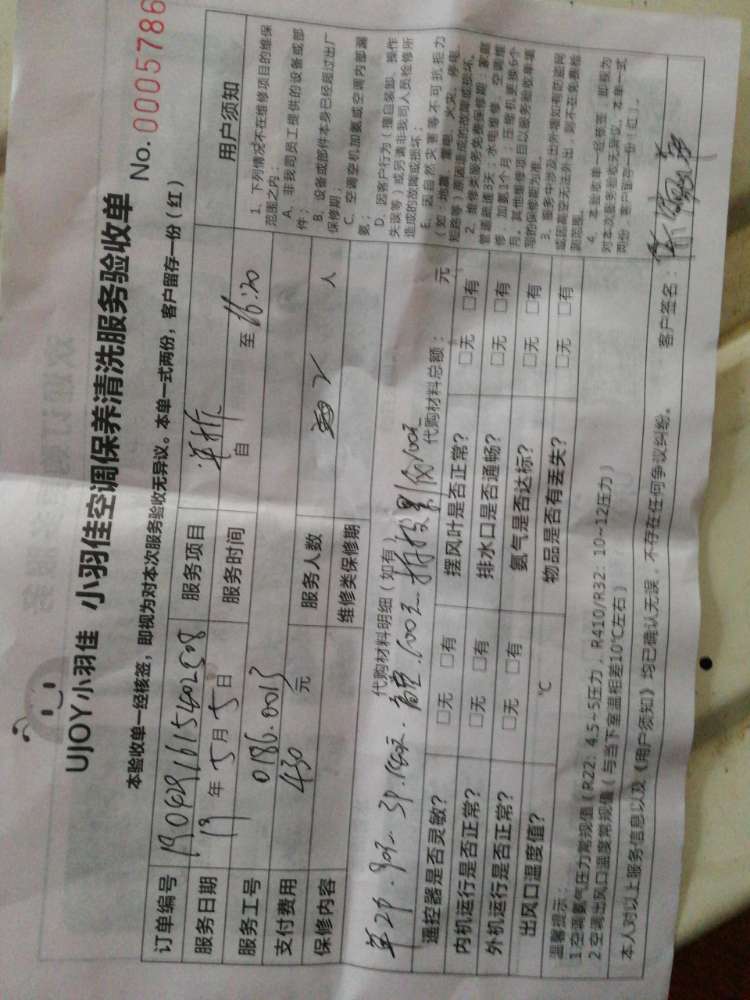 UJOY小羽佳 小羽佳空调保养清洗服务验收单
No. 0005786
本验收单一经核签，即视为对本次服务验收无异议。本单一式两份，客户留存一份（红）
订单编号
服务项目
服务日期 19 年 5 月 5 日
服务时间 自 至 16:20
服务工号 0186.0013
支付费用 430 元
服务人数 2 人
保修内容
维修类保修期
代购材料明细（如有）
代购材料总额： 元
遥控器是否灵敏？ □无 □有
摆风叶是否正常？ □无 □有
内机运行是否正常？ □无 □有
排水口是否通畅？ □无 □有
外机运行是否正常？ □无 □有
氨气是否达标？ □无 □有
出风口温度值？ ℃
物品是否有丢失？ □无 □有
温馨提示：
1 空调氨气压力常规值（R22：4.5~5压力，R410/R32：10~12压力）
2 空调出风口温度常规值（与当下室温相差10℃左右）
本人对以上服务信息以及《用户须知》均已确认无误，不存在任何争议纠纷。
客户签名：
用户须知
1、下列情况不在维修项目的维保
范围之内：
A、非我司员工提供的设备或部
件；
B、设备或部件本身已经超过出厂
保修期；
C、空调空机加氨或空调内部漏
氨；
D、因客户行为（擅自装卸、操作
失误等）或另请非我司人员检修所
造成的故障或损坏；
E、因自然灾害等不可抗拒力
（如：地震、雷电、火灾、停电、
短路等）原因造成的故障或损坏。
2、维修类服务免费保修期：家庭
管道疏通3天；水电维修、空调维
修、加氨1个月；压缩机更换6个
月。其他维修项目以服务验收单填
写的保修期为准。
3、服务中涉及出外墙如有防盗网
或因高空无法外出，则不在免费检
测范围。
4、本验收单一经核签，即视为
对本次服务验收无异议。本单一式
两份，客户留存一份（红）。